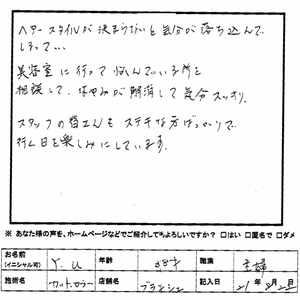 ヘアースタイルが決まらないと気分が落ち込んで
しまって…
美容室に行って悩んでいる所を
相談して、なやみが解消して気分スッキリ。
スタッフの皆さんもステキな方ばっかりで
行く日を楽しみにしています。
※ あなた様の声を、ホームページなどでご紹介してもよろしいですか？ □はい □匿名で □ダメ
お名前 (イニシャル可) Y.U 年齢 38才 職業 主婦
施術名 カット.カラー 店舗名 ブランシェ 記入日 21年8月2日